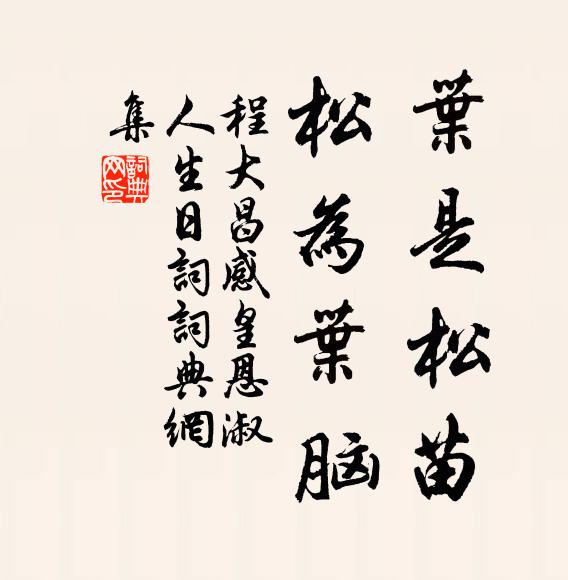 葉是松苗
松為葉脑
程大昌感皇恩淑
人生日詞詞典網
集
詞典網印